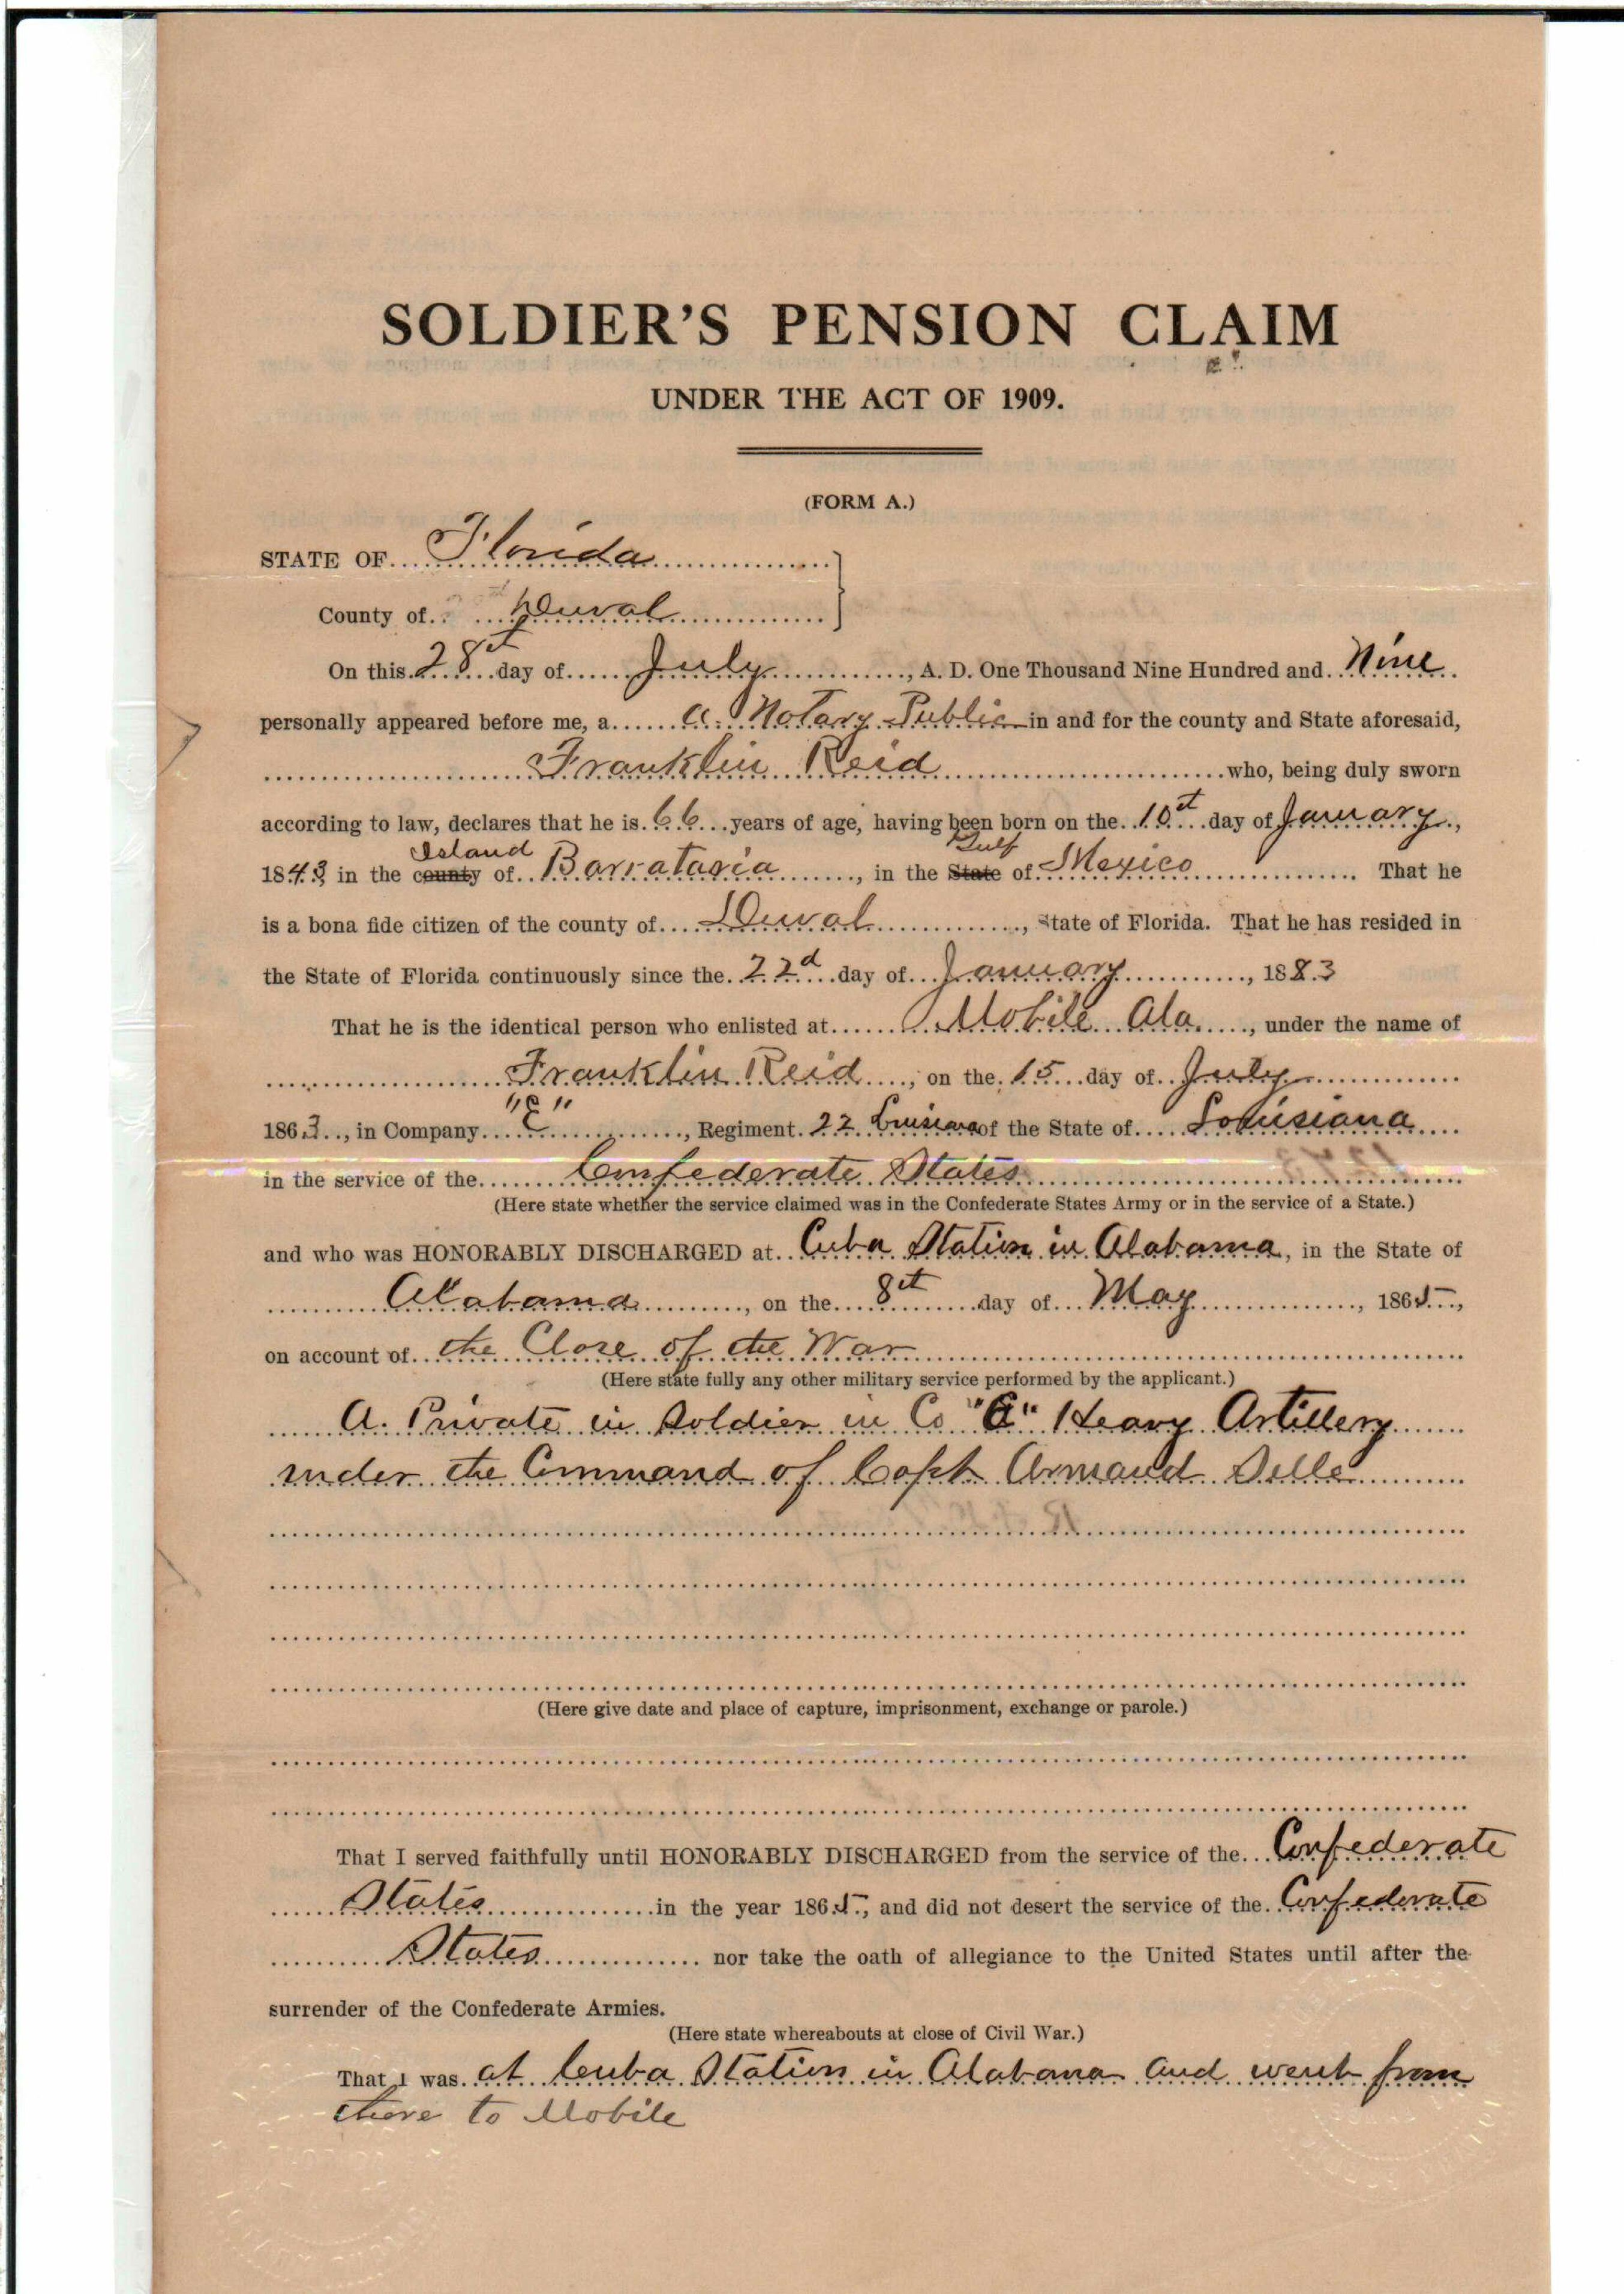 SOLDIER'S PENSION CLAIM
UNDER THE ACT OF 1909.
(FORM A.)
STATE OF Florida
County of Duval
On this 28st day of July, A. D. One Thousand Nine Hundred and Nine
personally appeared before me, a a. Notary Public in and for the county and State aforesaid,
Franklin Reid who, being duly sworn
according to law, declares that he is 66 years of age, having been born on the 10st day of January,
Island Gulf
1843 in the county of Barrataria, in the State of Mexico. That he
is a bona fide citizen of the county of Duval, State of Florida. That he has resided in
the State of Florida continuously since the 22d day of January, 1883
That he is the identical person who enlisted at Mobile Ala., under the name of
Franklin Reid, on the 15 day of July
1863, in Company "E", Regiment 22 Louisiana of the State of Louisiana
in the service of the Confederate States
(Here state whether the service claimed was in the Confederate States Army or in the service of a State.)
and who was HONORABLY DISCHARGED at Cuba Station in Alabama, in the State of
Alabama, on the 8st day of May, 1865,
on account of the Close of the War
(Here state fully any other military service performed by the applicant.)
A. Private in Soldier in Co Heavy Artillery
under the Command of Capt Armand
(Here give date and place of capture, imprisonment, exchange or parole.)
That I served faithfully until HONORABLY DISCHARGED from the service of the Confederate
States in the year 1865, and did not desert the service of the Confederate
States nor take the oath of allegiance to the United States until after the
surrender of the Confederate Armies.
(Here state whereabouts at close of Civil War.)
That I was at Cuba Station in Alabama and went from
there to Mobile